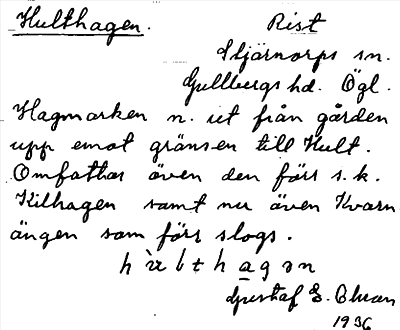 Hulthagen. Rist
Stjärnorps sn.
Gullbergs hd. Ögl.
Hagmarken n. ut från gården
upp emot gränsen till Hult.
Omfattar även den förr s.k.
Kilhagen samt nu även Kvarn
ängen som förr slogs.
Gustaf E. Olsson
1936